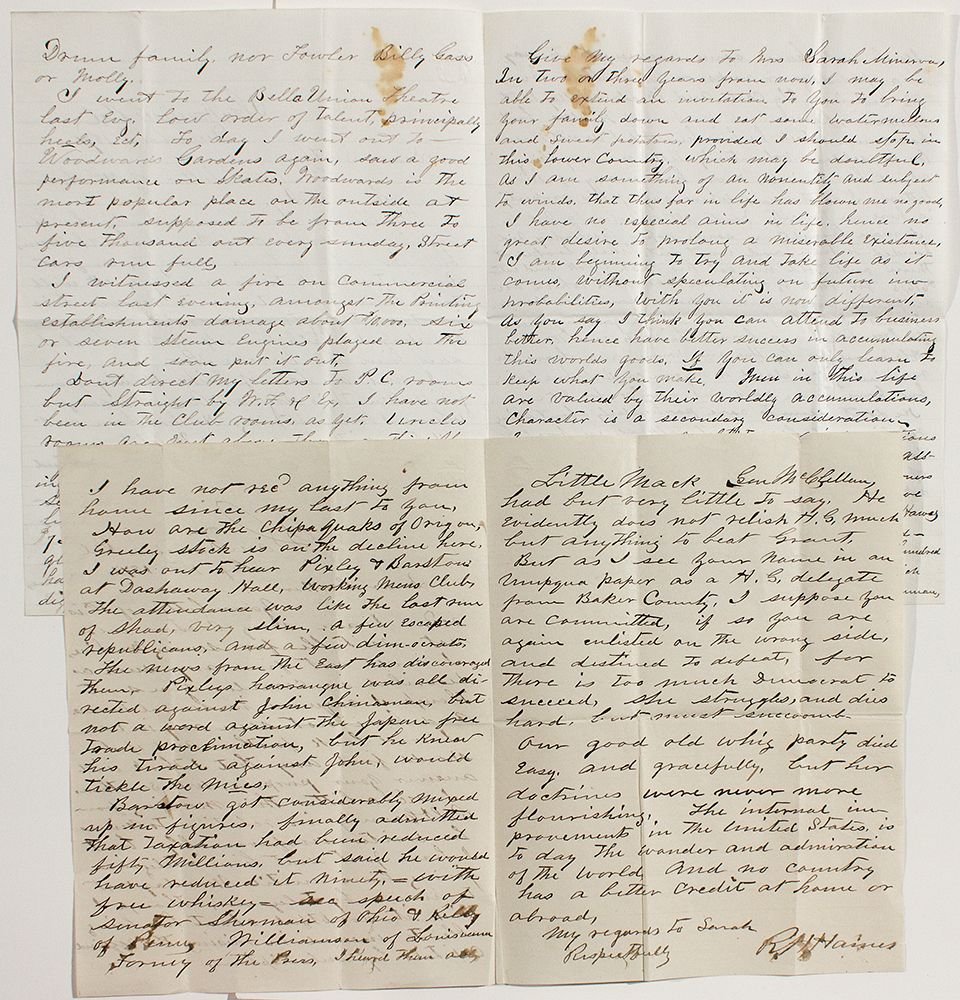 Drum family, nor Fowler Billy Cass
or Molly.
I went to the Bella Union Theatre
last Eve, low order of talent, principally
heels, &ct, To day I went out to
Woodwards Gardens again, saw a good
performance on Skates. Woodwards is the
most popular place on the outside at
present, supposed to be from three to
five thousand out every sunday, Street
cars run full,
I witnessed a fire on Commercial
street last Evening, amongst the Printing
establishments damage about six
or seven steam Engines played on the
fire, and soon put it out,
Dont direct my letters to P. C. rooms
but straight by W. F. & Ex, I have not
been in the Club rooms, as yet, Uncles
rooms are
Give my regards to Mrs Sarah Minerva,
In two or three years from now, I may be
able to extend an invitation to you to bring
your family down and eat some watermelons
and sweet potatoes, provided I should stop in
this lower Country, which may be doubtful,
as I am something of an Nonentity and subject
to winds, that thus far in life has blown me no good,
I have no especial aims in life, hence no
great desire to prolong a miserable Existence,
I am beginning to try and take life as it
comes, without speculating on future im-
probabilities, With you it is now different,
As you say I think you can attend to business
better, hence have better success in accumulating
this worlds goods, If you can only learn to
keep what you make, Men in this life
are valued by their worldly accumulations,
Character is a secondary consideration,
I have not recd anything from
home since my last to you,
How are the chipaquaks of Origon,
Greeley stock is on the decline here,
I was out to hear Pixley & Barstow
at Dashaway Hall, Working Mens Club,
The attendance was like the last run
of Shad, very slim, a few Escaped
republicans, and a few dimocrats,
The news from the East has discouraged
them, Pixleys harrangue was all di-
rected against John Chinaman, but
not a word against the Japan free
trade proclimation, but he knew
his tirade against John, would
tickle the Mics,
Barstow got considerably mixed
up in figures, finally admitted
that taxation had been reduced
fifty Millions, but said he would
have reduced it Ninety, = with
free whiskey = see speech of
senator Sherman of Ohio & Kelly
of Penn Williamson of Louisiana
Forney of the Press, I heard them all
Little Mack Gen McClellan,
had but very little to say, He
Evidently does not relish H. G. much
but anything to beat Grant,
But as I see your Name in an
Umpqua paper as a H. G. delegate
from Baker County, I suppose you
are committed, if so you are
again enlisted on the wrong side,
and destined to defeat, for
there is too much Dumocrat to
succeed, she struggles, and dies
hard, but must succomb.
Our good old whig party died
Easy, and gracefully, but her
doctrines were never more
flourishing, The internal im-
provements in the United States, is
to day the wonder and admiration
of the world And no country
has a better Credit at home or
abroad,
My regards to Sarah
Respectfully
R H Haines